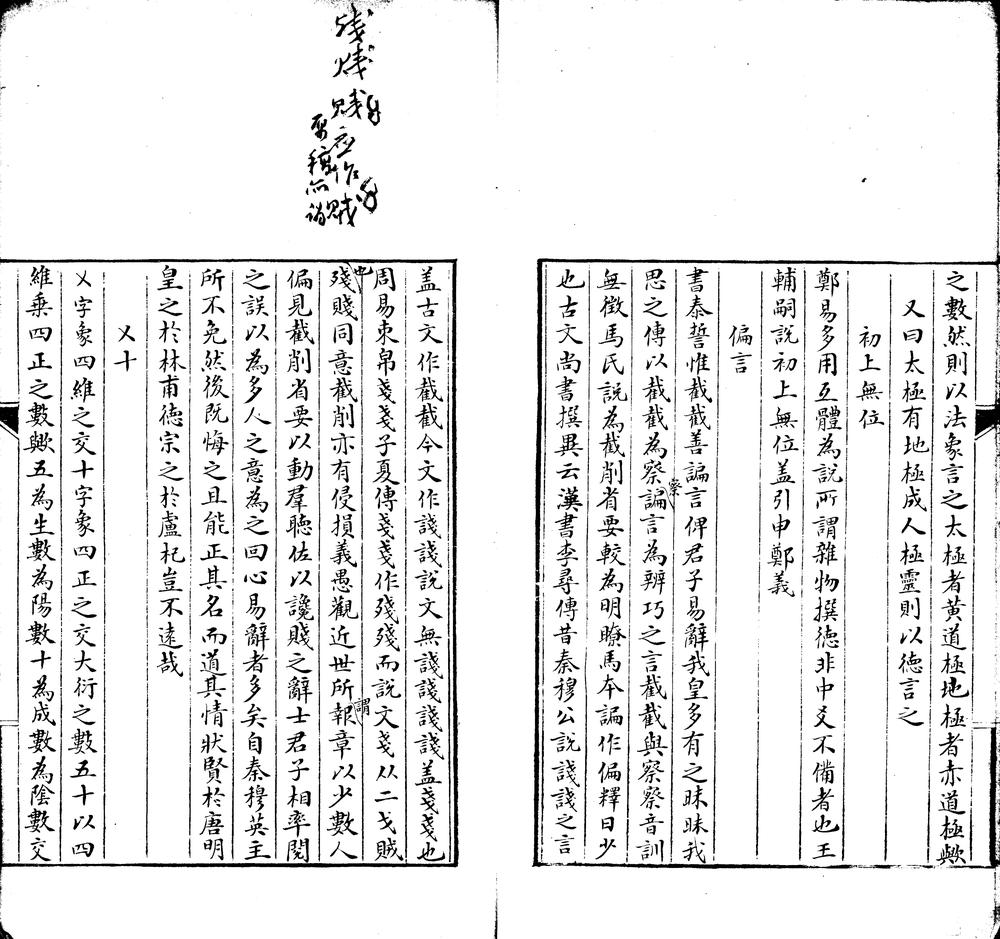 之數然則以法象言之太極者黄道極地極者赤道極歟
又曰太極有地極成人極靈則以德言之
初上無位
鄭易多用互體為說所謂雜物撰德非中爻不備者也王
輔嗣說初上無位盖引申鄭義
偏言
書泰誓惟截截善諞言俾君子易辭我皇多有之昧昧我
思之傳以截截為察察諞言為辨巧之言截截與察察音訓
無徵馬氏說為截削省要較為明瞭馬本諞作偏釋曰少
也古文尚書撰異云漢書李尋傳昔秦穆公說諓諓之言
盖古文作截截今文作諓諓說文無諓諓諓諓盖戔戔也
周易束帛戔戔子夏傳戔戔作殘殘而說文戔从二戈賊也
殘賤同意截削亦有侵損義愚觀近世所謂報章以少數人
偏見截削省要以動羣聽佐以讒賤之辭士君子相率閱
之誤以為多人之意為之回心易辭者多矣自秦穆英主
所不免然後既悔之且能正其名而道其情狀賢於唐明
皇之於林甫德宗之於盧杞豈不遠哉
乂十
乂字象四維之交十字象四正之交大衍之數五十以四
維乗四正之數歟五為生數為陽數十為成數為陰數交
賤应作賊